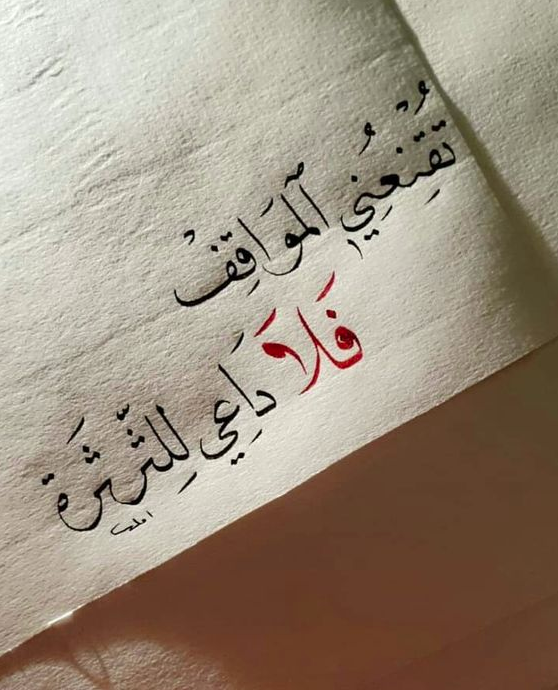 تُقِنعُنِي ٱلمَوَاقِفْ
فَلَا دَاعِي لِلثَّرثَرَة